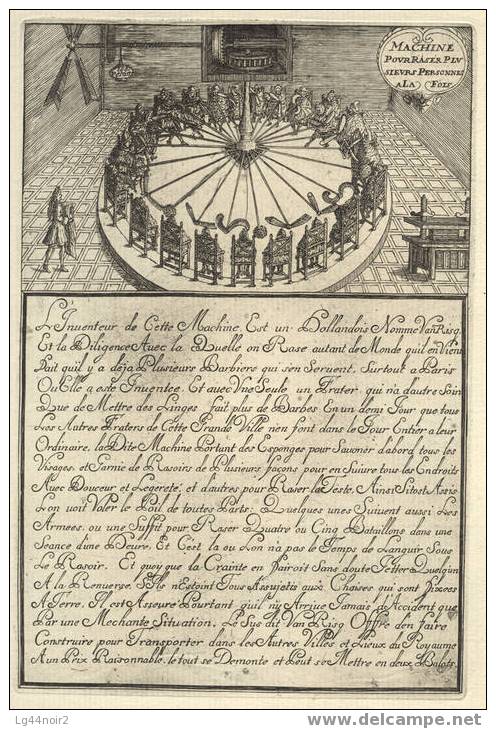 MACHINE
POUR RASER PLU
SIEURS PERSONNES
A LA FOIS
L'Inventeur de Cette Machine, Est un Hollandois Nomme Van Risq,
Et la Diligence Avec la Quelle on Rase autant de Monde quil en Vient
Fait quil y a deja Plusieurs Barbiers qui s'en Servent, Surtout a Paris
Ou Elle a este Inventée, Et avec Une Seule un Frater, qui n'a d'autre Soin
Que de Mettre des Linges fait plus de Barbes, En un demi Jour que tous
Les Matres Fraters de Cette Grande Ville n'en font dans le Jour Entier a leur
Ordinaire, la Dite Machine Portant des Esponges pour Savoner d'abord tous les
Visages et Garnie de Rasoirs de Plusieurs façons pour en Suivre tous les Endroits
Avec Douceur et Legereté, et d'autres pour Raser la Teste. Ainsi Sitost Assis
L'on voit Voler le Poil de toutes Parts; Quelques unes Suivent aussi Les
Armées, ou une Suffit pour Raser Quatre ou Cinq Bataillons dans une
Seance d'une Heure, Et C'est la ou L'on n'a pas le Temps de Languir Sous
Le Rasoir. Et quoy que la Crainte en Fairoit Sans doute Jetter Quelqu'un
A la Renverse, S'Ils n'Estoint Tous Assujetis aux Chaises qui sont Fixées
A Terre, Il est Asseuré Pourtant qu'il n'y Arrive Jamais d'Accident que
Par une Mechante Situation. Le Sus dit Van Risq Offre d'en faire
Construire pour Transporter dans les Autres Villes et Lieux du Royaume
A un Prix Raisonnable, le tout se Demonte et Peut se Mettre en deux Balots.
Lg44noir2
delcampe.net